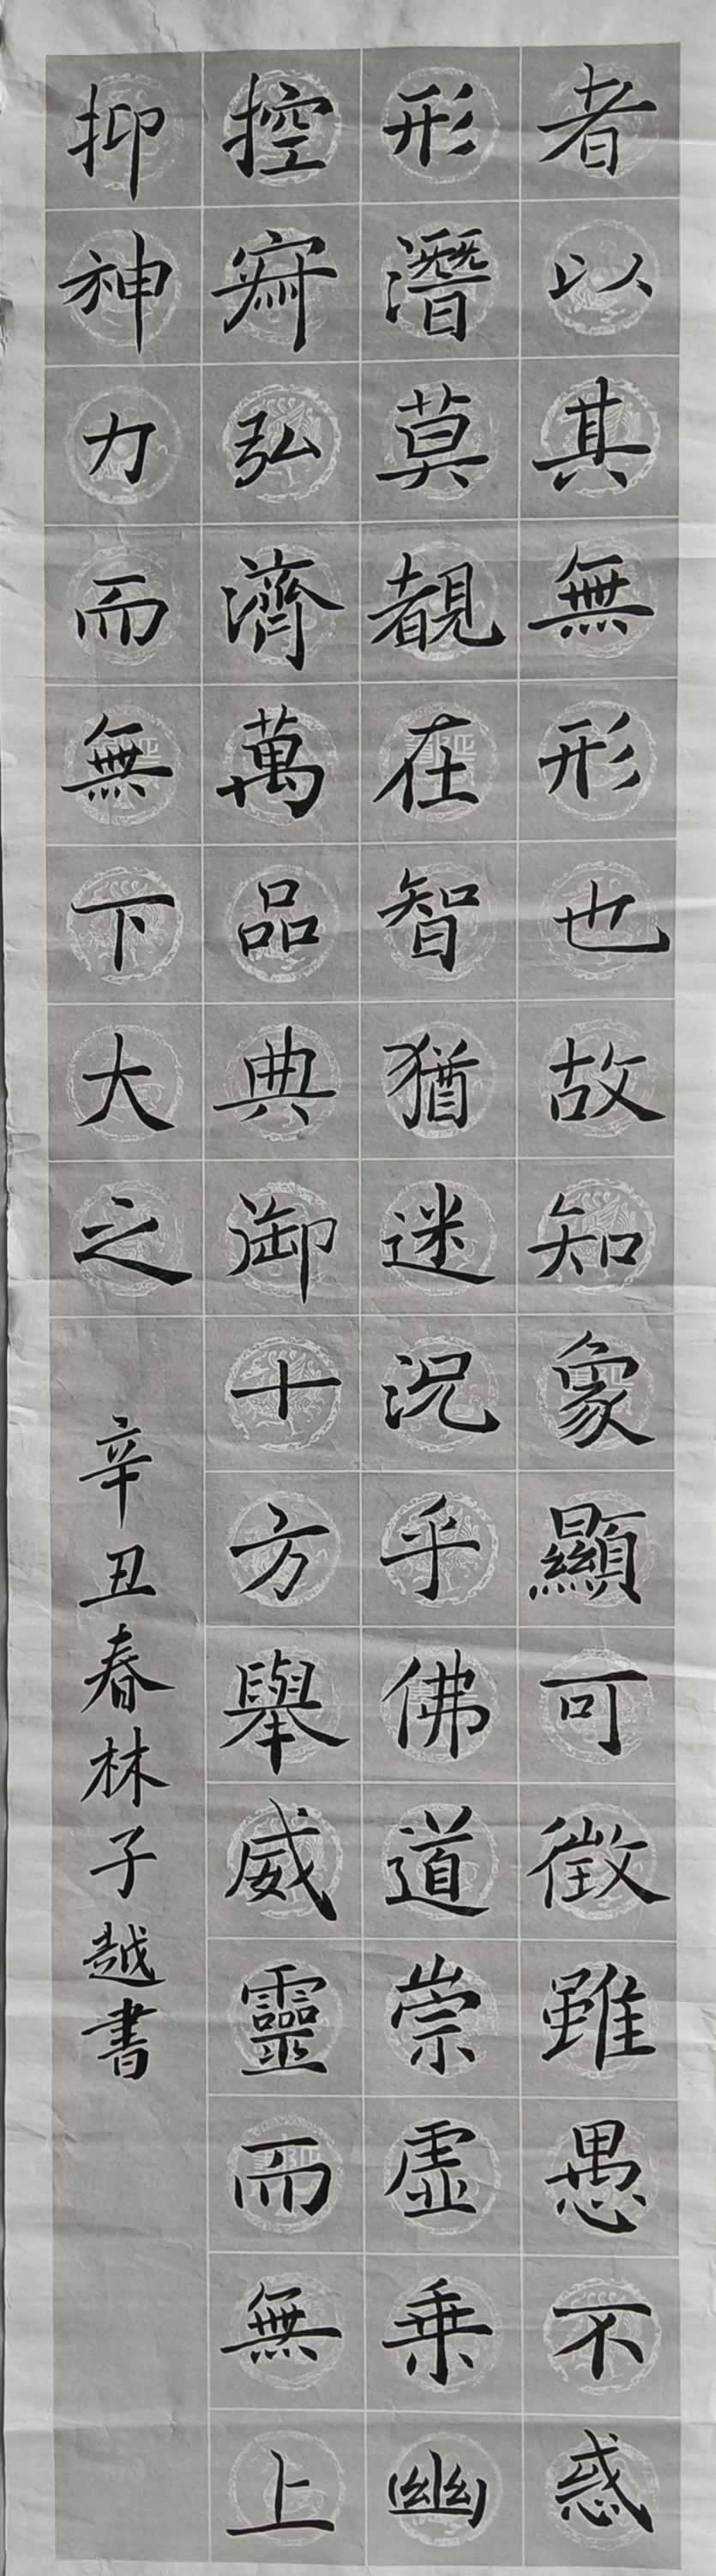 者以其無形也故知象顯可徵雖愚不惑
形潛莫覩在智猶迷況乎佛道崇虛乗幽
控寂弘濟萬品典御十方舉威靈而無上
抑神力而無下大之
辛丑春林子越書